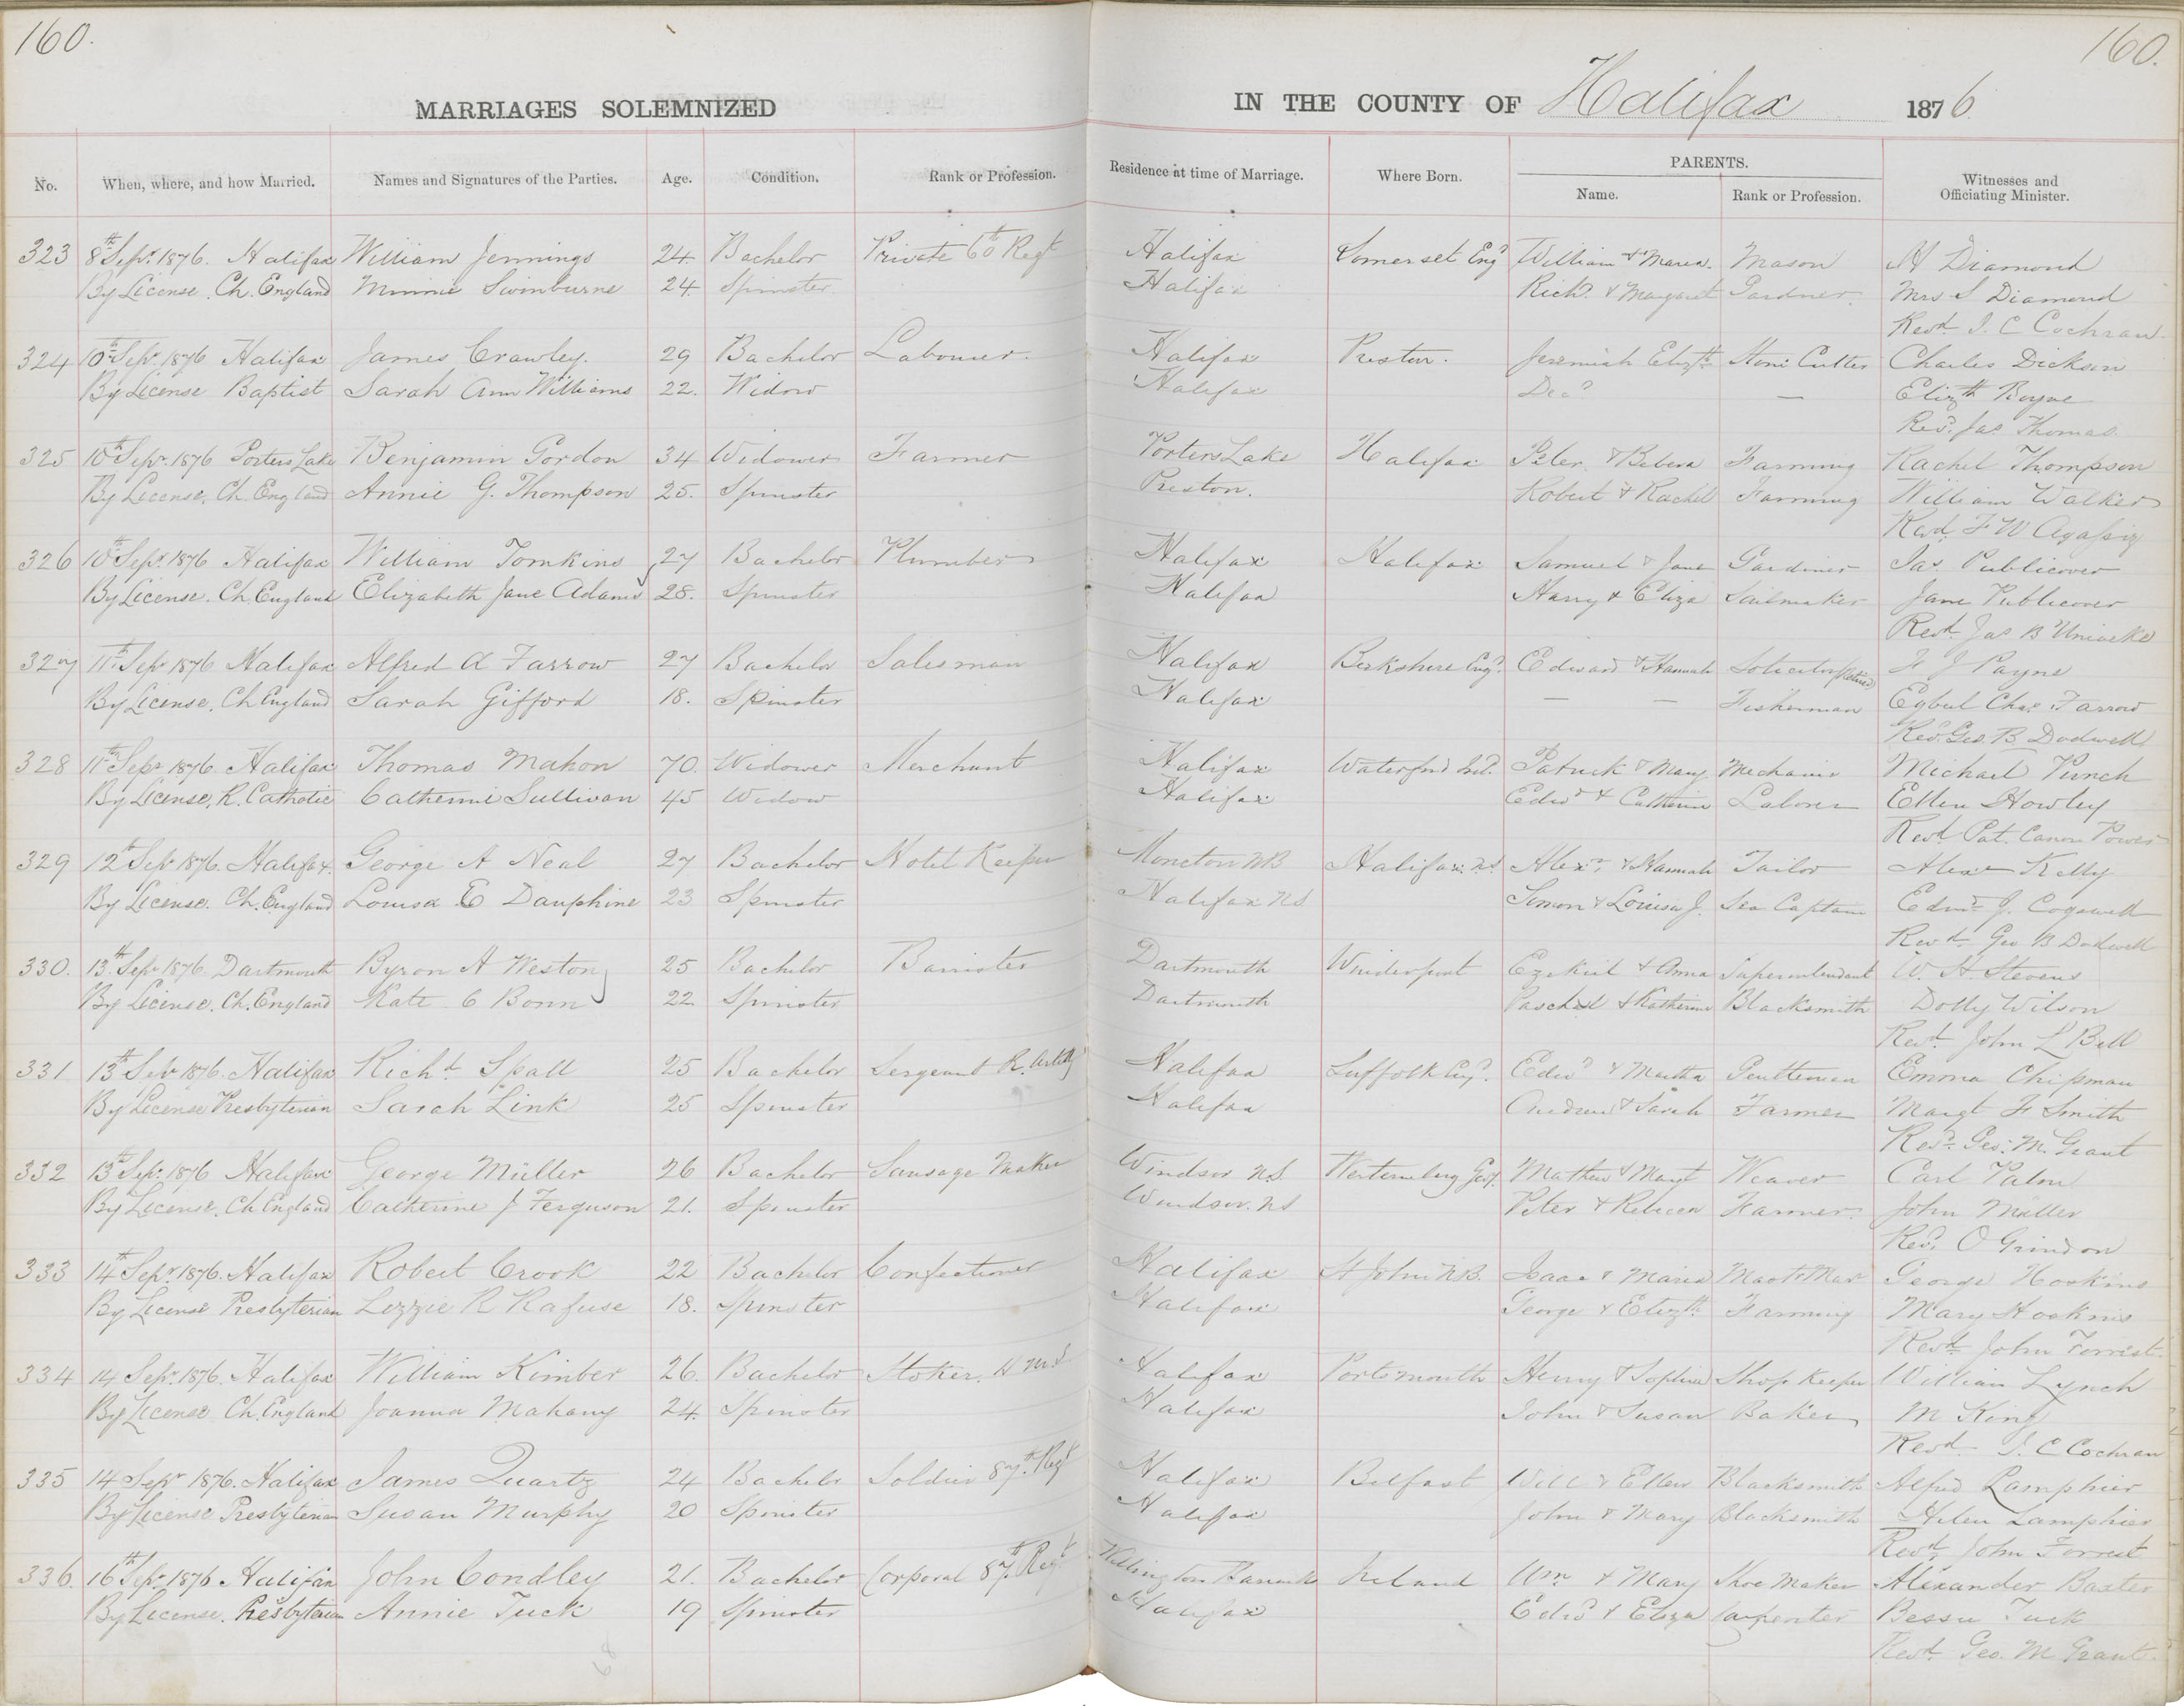 160. 160.
MARRIAGES SOLEMNIZED IN THE COUNTY OF Halifax 1876
PARENTS.
No. When, where, and how Married. Names and Signatures of the Parties. Age. Condition. Rank or Profession. Residence at time of Marriage. Where Born. Name. Rank or Profession. Witnesses and Officiating Minister.
323 8th Sepr 1876. Halifax William Jennings 24 Bachelor Private 60th Regt Halifax Somerset Engd William & Maria. Mason H Diamond
By License. Ch. England Minnie Swinburne 24. Spinster. Halifax Richd. & Margaret Gardner. Mrs S Diamond
Revd. J. C Cochran
324 10th Sepr 1876 Halifax James Crawley. 29 Bachelor Labourer. Halifax Preston. Jeremiah Elizth Stone Cutter Charles Dickson
By License Baptist Sarah Ann Williams 22. Widow Halifax Dead — Elizth Boyne
Revd. Jas. Thomas.
325 10th Sepr. 1876 Porters Lake Benjamin Gordon 34 Widower Farmer Porters Lake Halifax Peter & Farming Rachel Thompson
By License. Ch. England Annie G. Thompson 25. Spinster Preston. Robert & Rachel Farming William Walker
Revd. F W Agassiz
326 10th Sepr. 1876 Halifax William Tomkins 27 Bachelor Plumber Halifax Halifax Samuel & Jane Gardiner Jas. Publicover
By License. Ch. England Elizabeth Jane Adams 28. Spinster Halifax Harry & Eliza Sailmaker Jane Publicover
Revd. Jas B Uniacke
327 11th Sepr 1876 Halifax Alfred A Farrow 27 Bachelor Salesman Halifax Berkshire Engd. Edward & Hannah Solicitor (Retired) F J Payne
By License. Ch England Sarah Gifford 18. Spinster Halifax — — Fisherman Egbert Chas. Farrow
Revd. Geo. B. Dodwell
328 11th Sepr 1876. Halifax Thomas Mahon 70. Widower Merchant Halifax Waterford Ird. Patrick & Mary Mechanic Michael Punch
By License, R. Catholic Catherine Sullivan 45 Widow Halifax Edwd & Catherine Laborer Ellen Howley
Revd. Pat. Canon Power
329 12th Sepr 1876. Halifax. George A Neal 27 Bachelor Hotel Keeper Moncton NB Halifax. N.S. Alexr. & Hannah Tailor Alexr Kelly
By License. Ch. England Louisa E Dauphine 23 Spinster Halifax NS Simon & Louisa J. Sea Captain Edmd J. Cogswell
Revd. Geo B Dodwell
330. 13th Sepr 1876. Dartmouth Byron A Weston 25 Bachelor Barrister Dartmouth Winderport Ezekiel & Anna Superintendent W. H. Stevens
By License. Ch. England Kate C Bonn 22 Spinster Dartmouth Paschal & Katherine Blacksmith Dolly Wilson
Revd. John L Bell
331 13th Sepr 1876. Halifax Richd. Spall 25 Bachelor Sergeant R. Artilly Halifax Suffolk Engd. Edwd & Martha Gentleman Emma Chipman
By License Presbyterian Sarah Link 25 Spinster Halifax Andrew & Sarah Farmer Margt F Smith
Revd. Geo: M. Grant
332 13th Sepr. 1876 Halifax George Müller 26 Bachelor Sausage Maker Windsor N.S. Wertemburg Gery. Mathew & Margt Weaver Carl Palm
By License. Ch England Catherine J Ferguson 21. Spinster Windsor. NS Peter & Rebecca Farmer. John Müller
Revd. O Grindon
333 14th Sepr. 1876. Halifax Robert Crook 22 Bachelor Confectioner Halifax St John N.B. Isaac & Maria George Hoskins
By License Presbyterian Lizzie R Rafuse 18. Spinster Halifax George & Elizth. Farming Mary Hoskins
Revd. John Forrest
334 14 Sepr. 1876. Halifax William Kimber 26. Bachelor Stoker. H M S Halifax Portsmouth Henry & Sophia Shop Keeper William Lynch
By License Ch. England Joanna Mahany 24. Spinster Halifax John & Susan Baker M King
Revd J. C Cochran
335 14 Sepr 1876. Halifax James Quartz 24 Bachelor Soldier 87th. Regt Halifax Belfast Will & Ellen Blacksmith Alfred Lamphier
By License Presbyterian Susan Murphy 20 Spinster Halifax John & Mary Blacksmith Helen Lamphier
Revd. John Forrest
336. 16th Sepr. 1876 Halifax John Condley 21. Bachelor Corporal 87th Regt Wellington Barracks Ireland Wm & Mary Shoe Maker Alexander Baxter
By License. Presbyterian Annie Tuck 19 Spinster Halifax Edwd & Eliza Carpenter Bessie Tuck
Revd. Geo. M Grant.
68